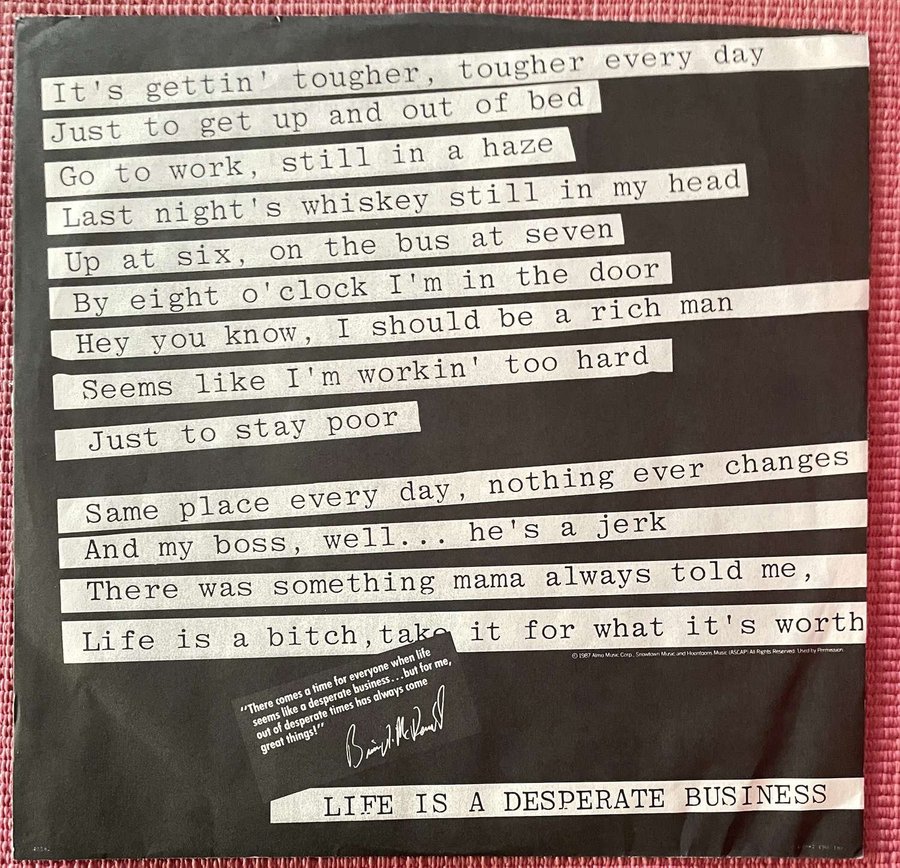 It's gettin' tougher, tougher every day
Just to get up and out of bed
Go to work, still in a haze
Last night's whiskey still in my head
Up at six, on the bus at seven
By eight o'clock I'm in the door
Hey you know, I should be a rich man
Seems like I'm workin' too hard
Just to stay poor
Same place every day, nothing ever changes
And my boss, well... he's a jerk
There was something mama always told me,
Life is a bitch, take it for what it's worth
© 1987 Almo Music Corp., Snowdown Music and Hoontoons Music (ASCAP) All Rights Reserved. Used by Permission.
"There comes a time for everyone when life
seems like a desperate business...but for me,
out of desperate times has always come
great things!"
LIFE IS A DESPERATE BUSINESS